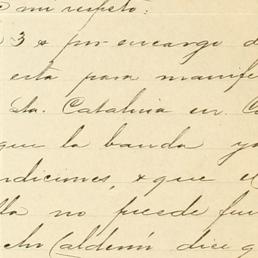 mi respeto:
3 & por encargo d
esta para manife
Sta. Catalina en. C
que la banda ya
ndiciones, & que e
lla no puede fun
Calderón dice q